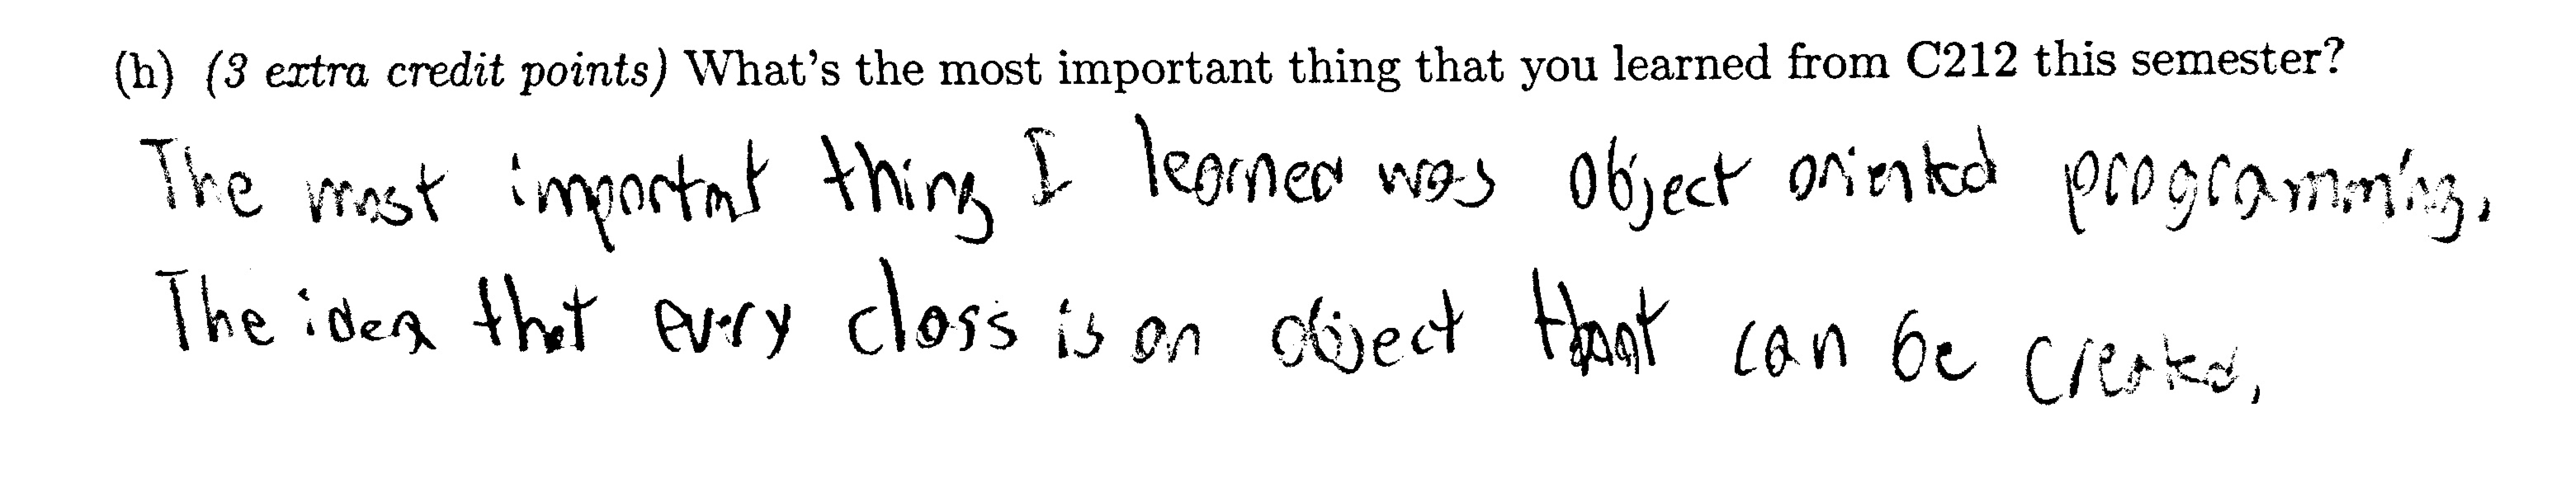 (h) (3 extra credit points) What's the most important thing that you learned from C212 this semester?
The most important thing I learned was object oriented programming.
The idea that every class is an object that can be created.